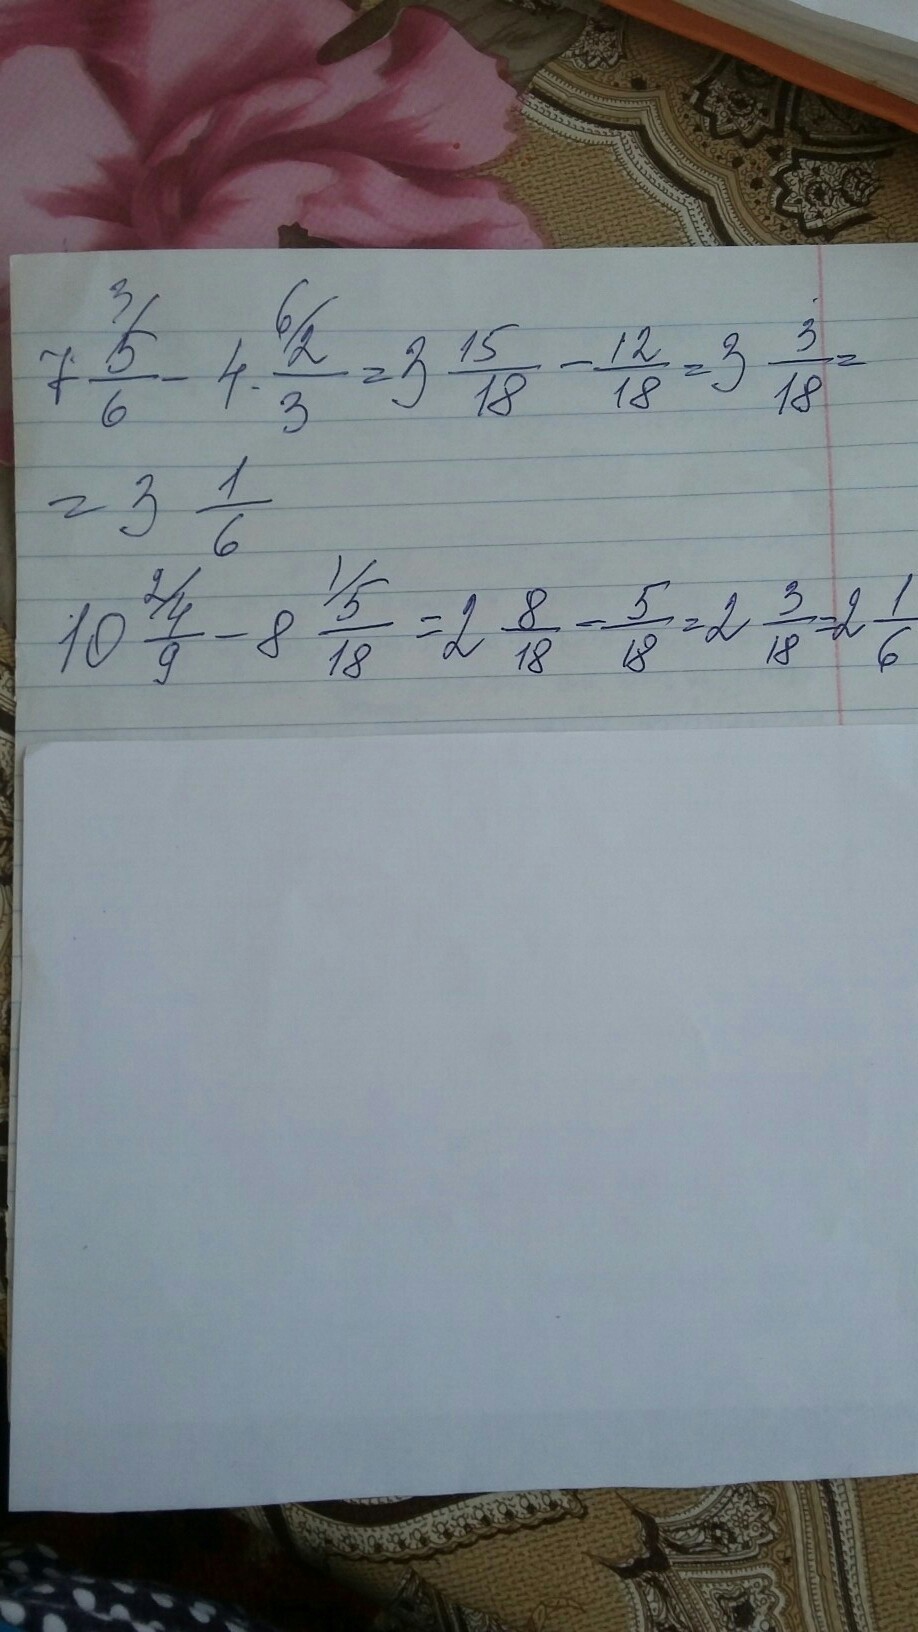 7 3/5/6 - 4 6/2/3 = 3 15/18 - 12/18 = 3 3/18 =
= 3 1/6
10 2/4/9 - 8 1/5/18 = 2 8/18 - 5/18 = 2 3/18 = 2 1/6